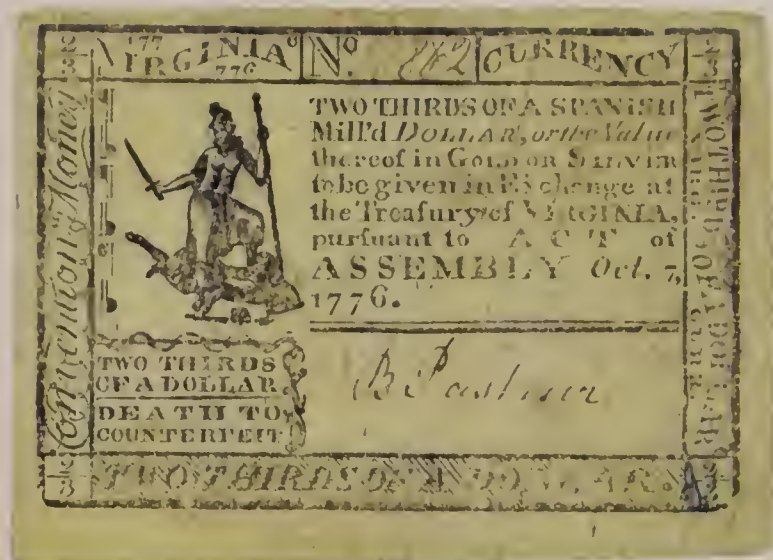 VIRGINIA
1776
No.
CURRENCY
TWO THIRDS OF A SPANISH
Mill'd DOLLAR, or the Value
thereof in GOLD or SILVER
to be given in Exchange at
the Treaſury of VIRGINIA,
purſuant to ACT of
ASSEMBLY Oct. 7,
1776.
TWO THIRDS
OF A DOLLAR.
DEATH TO
COUNTERFEIT
Convention Money
TWO THIRDS OF A DOLLAR
TWO THIRDS OF A DOLLAR